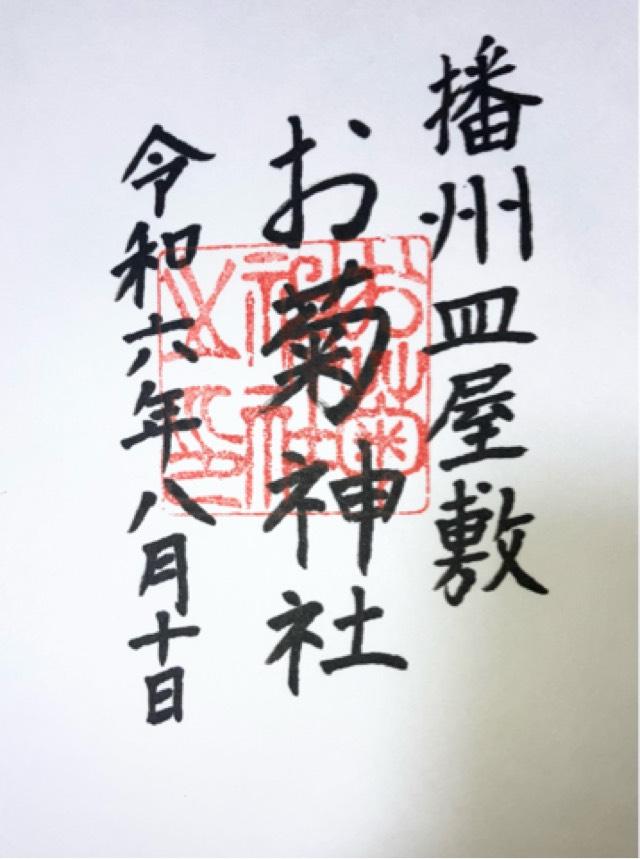 播州皿屋敷
お菊神社
令和六年八月十日